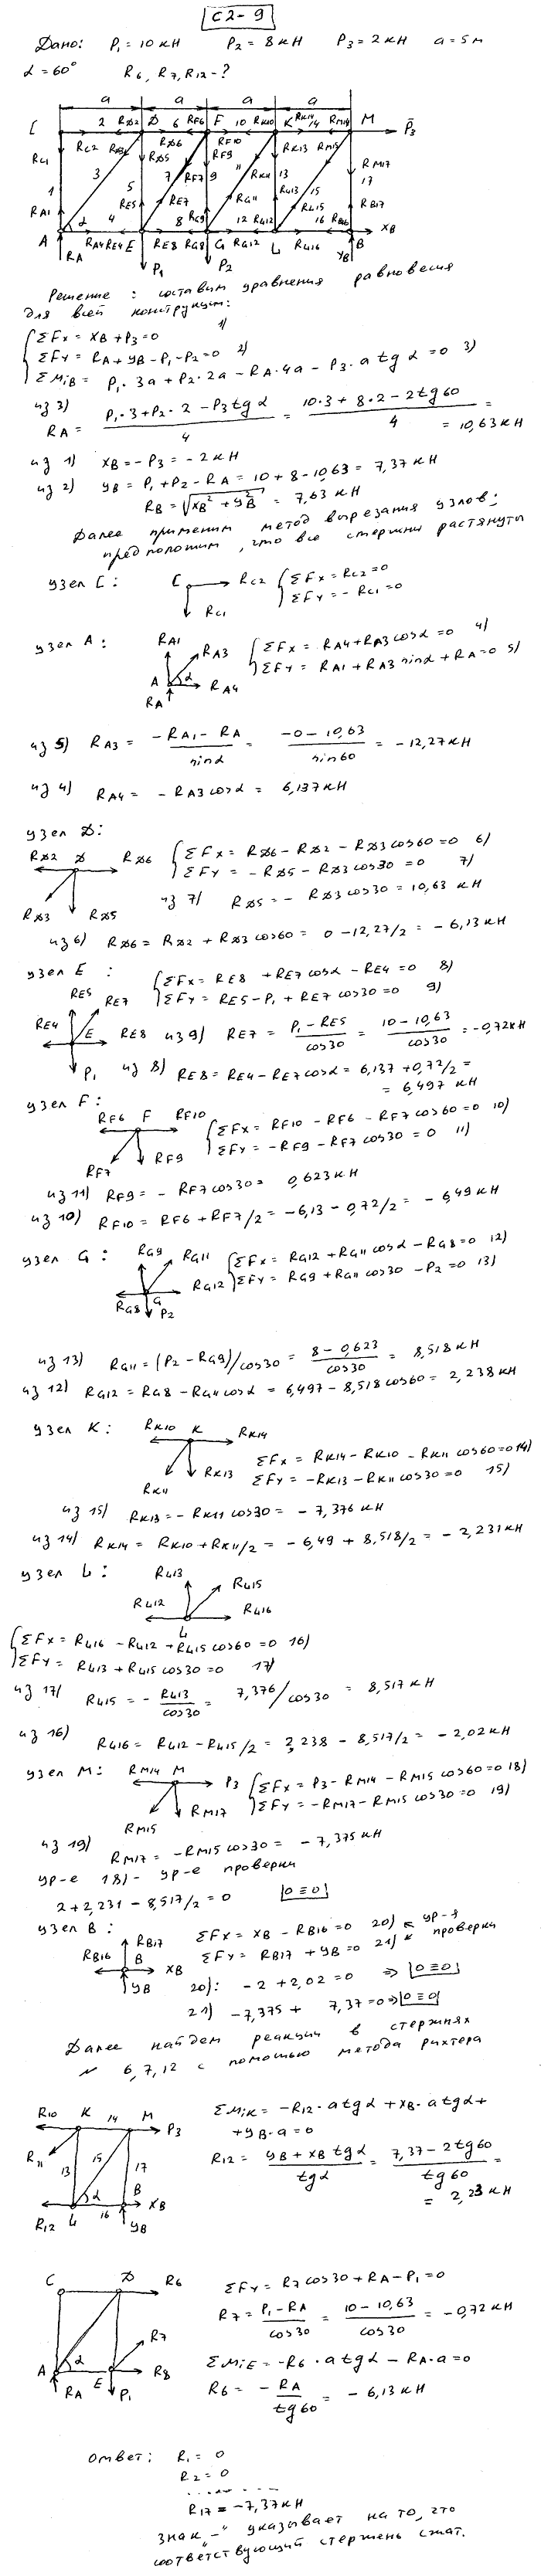 С2-9
Дано: P₁ = 10 кН P₂ = 8 кН P₃ = 2 кН a = 5 м
α = 60° R₆, R₇, R₁₂ - ?
a a a a
C 2 RД2 Д 6 RF6 F 10 RK10 K RK14 14 RM14 M P̄₃
RC1 RC2 RД3 RД6 RД5 RF10 RF9 RK13 RM15 RM17
1 3 5 7 RF7 9 11 RK11 13 15 17
RA1 RE5 RE7 RG9 RG11 RL13 RL15 RB17
A α 4 E 8 G 12 L 16 RB16 B XB
RA RA4 RE4 RE8 RG8 RG12 RL12 RL16 YB
P₁ P₂
Решение: составим уравнения равновесия
для всей конструкции:
ΣFx = XB + P₃ = 0 1)
ΣFy = RA + YB - P₁ - P₂ = 0 2)
ΣMiB = P₁·3a + P₂·2a - RA·4a - P₃·a tg α = 0 3)
из 3)
RA = P₁·3 + P₂·2 - P₃ tg α / 4 = 10·3 + 8·2 - 2tg60 / 4 = = 10,63 кН
из 1) XB = -P₃ = -2 кН
из 2) YB = P₁ + P₂ - RA = 10 + 8 - 10,63 = 7,37 кН
RB = √(XB² + YB²) = 7,63 кН
Далее применим метод вырезания узлов;
предположим, что все стержни растянуты
узел C: C RC2 ΣFx = RC2 = 0
RC1 ΣFy = -RC1 = 0
узел A: RA1 RA3 ΣFx = RA4 + RA3 cosα = 0 4)
A α RA4 RA ΣFy = RA1 + RA3 sinα + RA = 0 5)
из 5) RA3 = -RA1 - RA / sinα = -0 - 10,63 / sin60 = -12,27 кН
из 4) RA4 = -RA3 cosα = 6,137 кН
узел Д:
RД2 Д RД6 ΣFx = RД6 - RД2 - RД3 cos60 = 0 6)
ΣFy = -RД5 - RД3 cos30 = 0 7)
RД3 RД5 из 7) RД5 = -RД3 cos30 = 10,63 кН
из 6) RД6 = RД2 + RД3 cos60 = 0 - 12,27/2 = -6,13 кН
узел E: ΣFx = RE8 + RE7 cosα - RE4 = 0 8)
RE5 RE7 ΣFy = RE5 - P₁ + RE7 cos30 = 0 9)
RE4 E RE8 из 9) RE7 = P₁ - RE5 / cos30 = 10 - 10,63 / cos30 = -0,72 кН
P₁ из 8) RE8 = RE4 - RE7 cosα = 6,137 + 0,72/2 =
= 6,497 кН
узел F:
RF6 F RF10 ΣFx = RF10 - RF6 - RF7 cos60 = 0 10)
RF7 RF9 ΣFy = -RF9 - RF7 cos30 = 0 11)
из 11) RF9 = -RF7 cos30 = 0,623 кН
из 10) RF10 = RF6 + RF7/2 = -6,13 - 0,72/2 = -6,49 кН
узел G: RG9 RG11 ΣFx = RG12 + RG11 cosα - RG8 = 0 12)
RG8 G P₂ RG12 ΣFy = RG9 + RG11 cos30 - P₂ = 0 13)
из 13) RG11 = (P₂ - RG9)/cos30 = 8 - 0,623 / cos30 = 8,518 кН
из 12) RG12 = RG8 - RG11 cosα = 6,497 - 8,518 cos60 = 2,238 кН
узел K: RK10 K RK14
ΣFx = RK14 - RK10 - RK11 cos60 = 0 14)
RK11 RK13 ΣFy = -RK13 - RK11 cos30 = 0 15)
из 15) RK13 = -RK11 cos30 = -7,376 кН
из 14) RK14 = RK10 + RK11/2 = -6,49 + 8,518/2 = -2,231 кН
узел L: RL13 RL15
RL12 L RL16
ΣFx = RL16 - RL12 + RL15 cos60 = 0 16)
ΣFy = RL13 + RL15 cos30 = 0 17)
из 17) RL15 = - RL13 / cos30 = 7,376/cos30 = 8,517 кН
из 16) RL16 = RL12 - RL15/2 = 2,238 - 8,517/2 = -2,02 кН
узел M: RM14 M P₃ ΣFx = P₃ - RM14 - RM15 cos60 = 0 18)
RM15 RM17 ΣFy = -RM17 - RM15 cos30 = 0 19)
из 19) RM17 = -RM15 cos30 = -7,375 кН
ур-е 18) - ур-е проверки
2 + 2,231 - 8,517/2 = 0 |0 ≡ 0|
узел B: RB17 ΣFx = XB - RB16 = 0 20) ← ур-я
RB16 B XB ΣFy = RB17 + YB = 0 21) ← проверки
YB 20): -2 + 2,02 = 0 ⇒ |0 ≡ 0|
21) -7,375 + 7,37 = 0 ⇒ |0 ≡ 0|
Далее найдем реакции в стержнях
№ 6, 7, 12 с помощью метода Риттера
R10 K 14 M P₃ ΣMiK = -R12·a tgα + XB·a tgα +
+ YB·a = 0
R11 13 15 17 R12 = YB + XB tgα / tgα = 7,37 - 2tg60 / tg60 =
= 2,23 кН
R12 L α 16 B XB YB
C Д R6 ΣFy = R7 cos30 + RA - P₁ = 0
R7 = P₁ - RA / cos30 = 10 - 10,63 / cos30 = -0,72 кН
R7
A α E R8 ΣMiE = -R6·a tgα - RA·a = 0
RA P₁ R6 = - RA / tg60 = -6,13 кН
ответ: R₁ = 0
R₂ = 0
.........
R17 = -7,37 кН
знак „-" указывает на то, что
соответствующий стержень сжат.